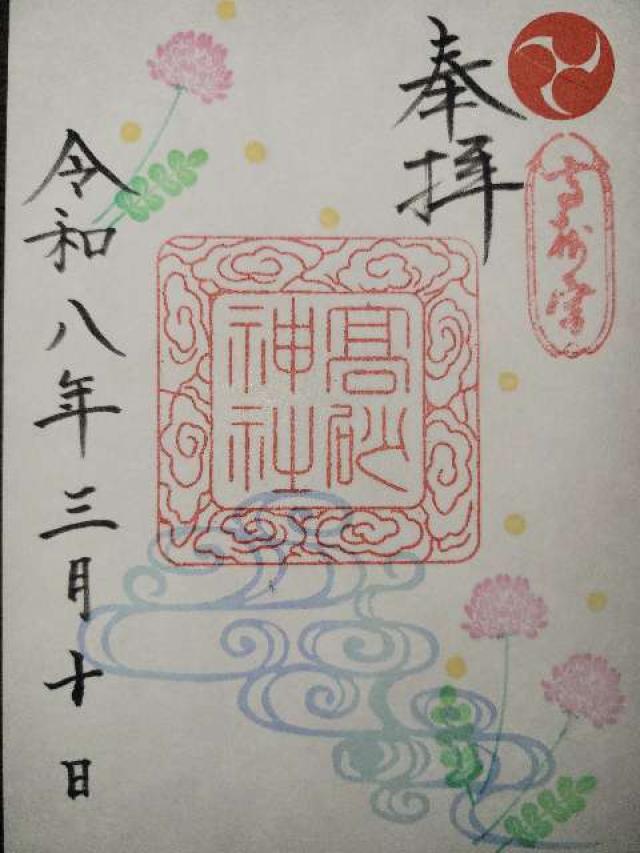 奉拝
髙砂
神社
令和八年三月十日